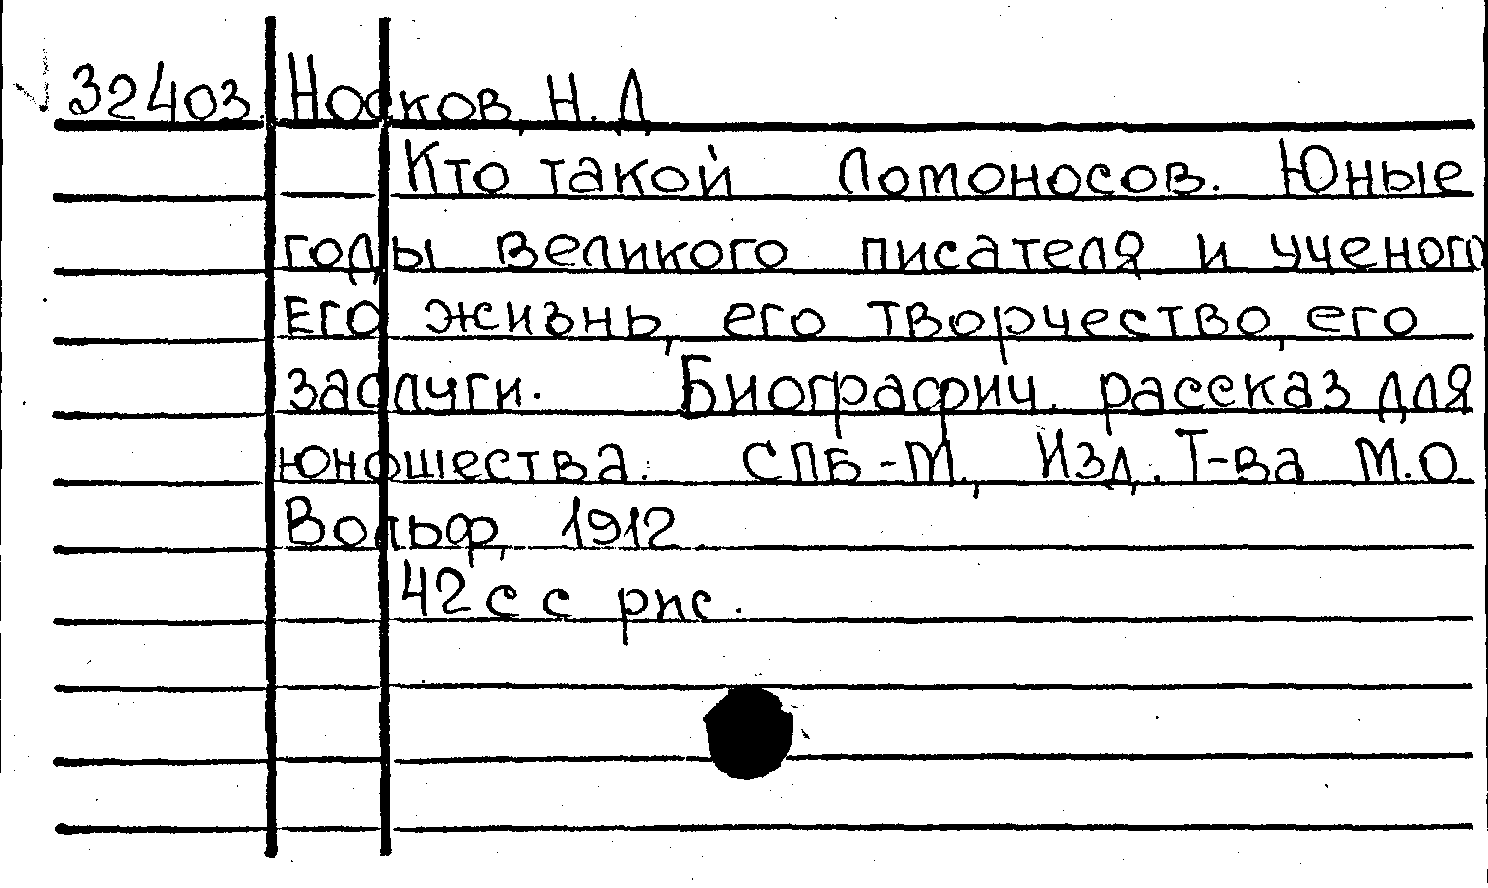 32403 Носков, Н. Д
Кто такой Ломоносов. Юные
годы великого писателя и ученого
Его жизнь, его творчество, его
заслуги. Биографич. рассказ для
юношества. СПБ-М., Изд. Т-ва М.О.
Вольф, 1912.
42 с с рис.